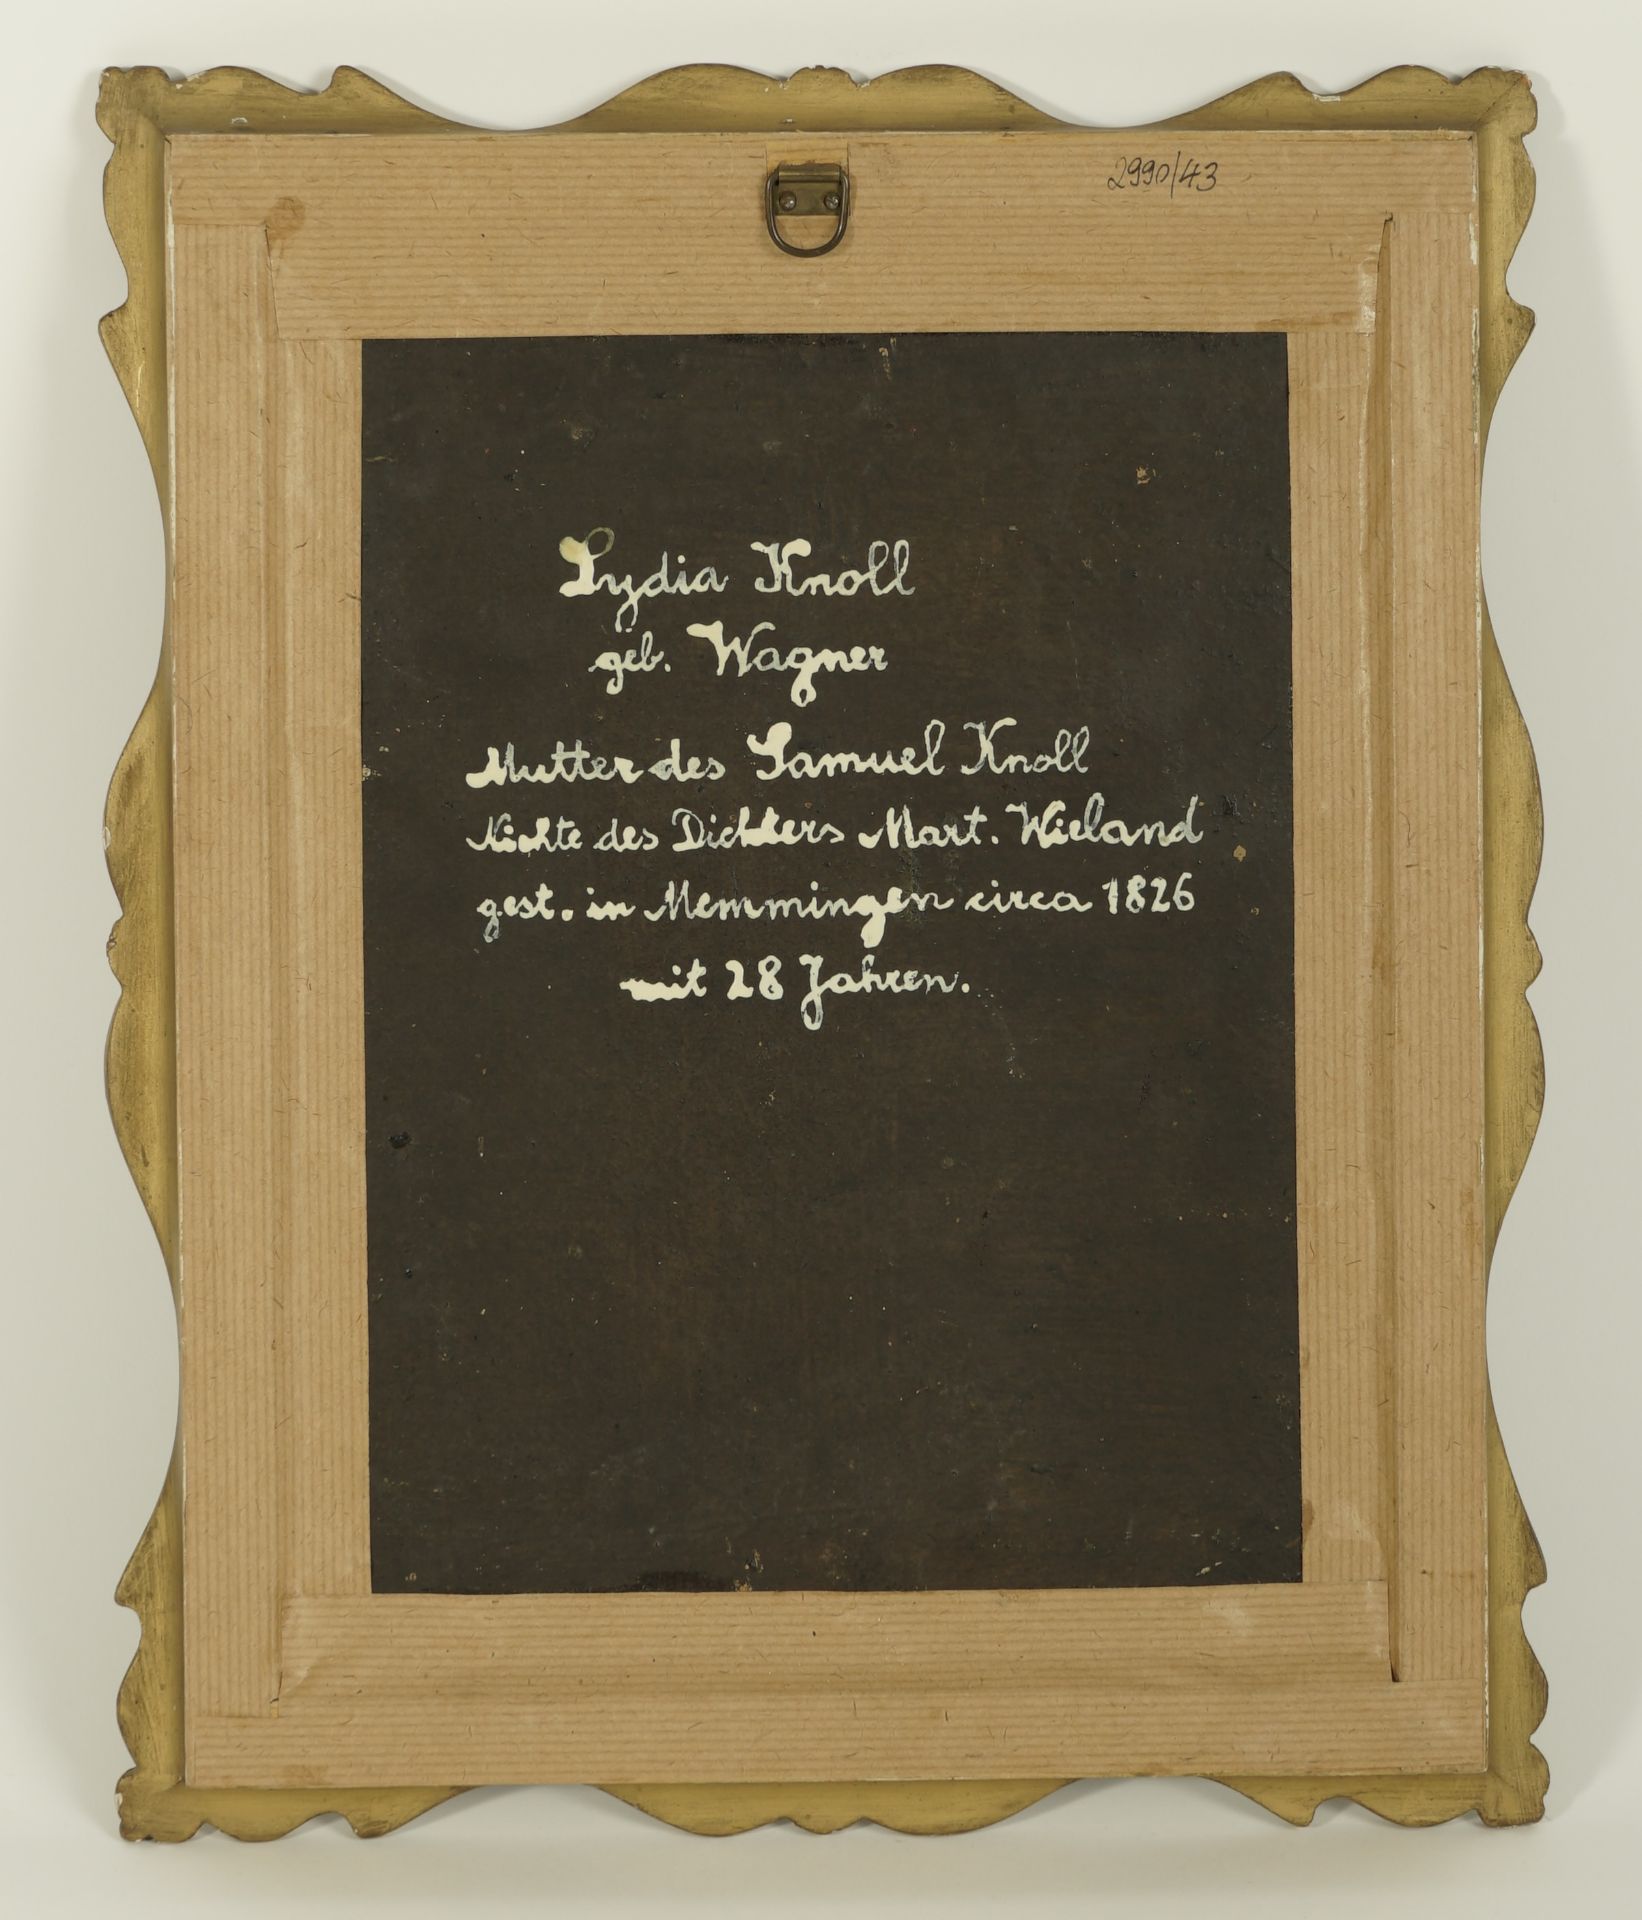 2990/43
Lydia Knoll
geb. Wagner
Mutter des Samuel Knoll
Nichte des Dichters Mart. Wieland
gest. in Memmingen circa 1826
mit 28 Jahren.